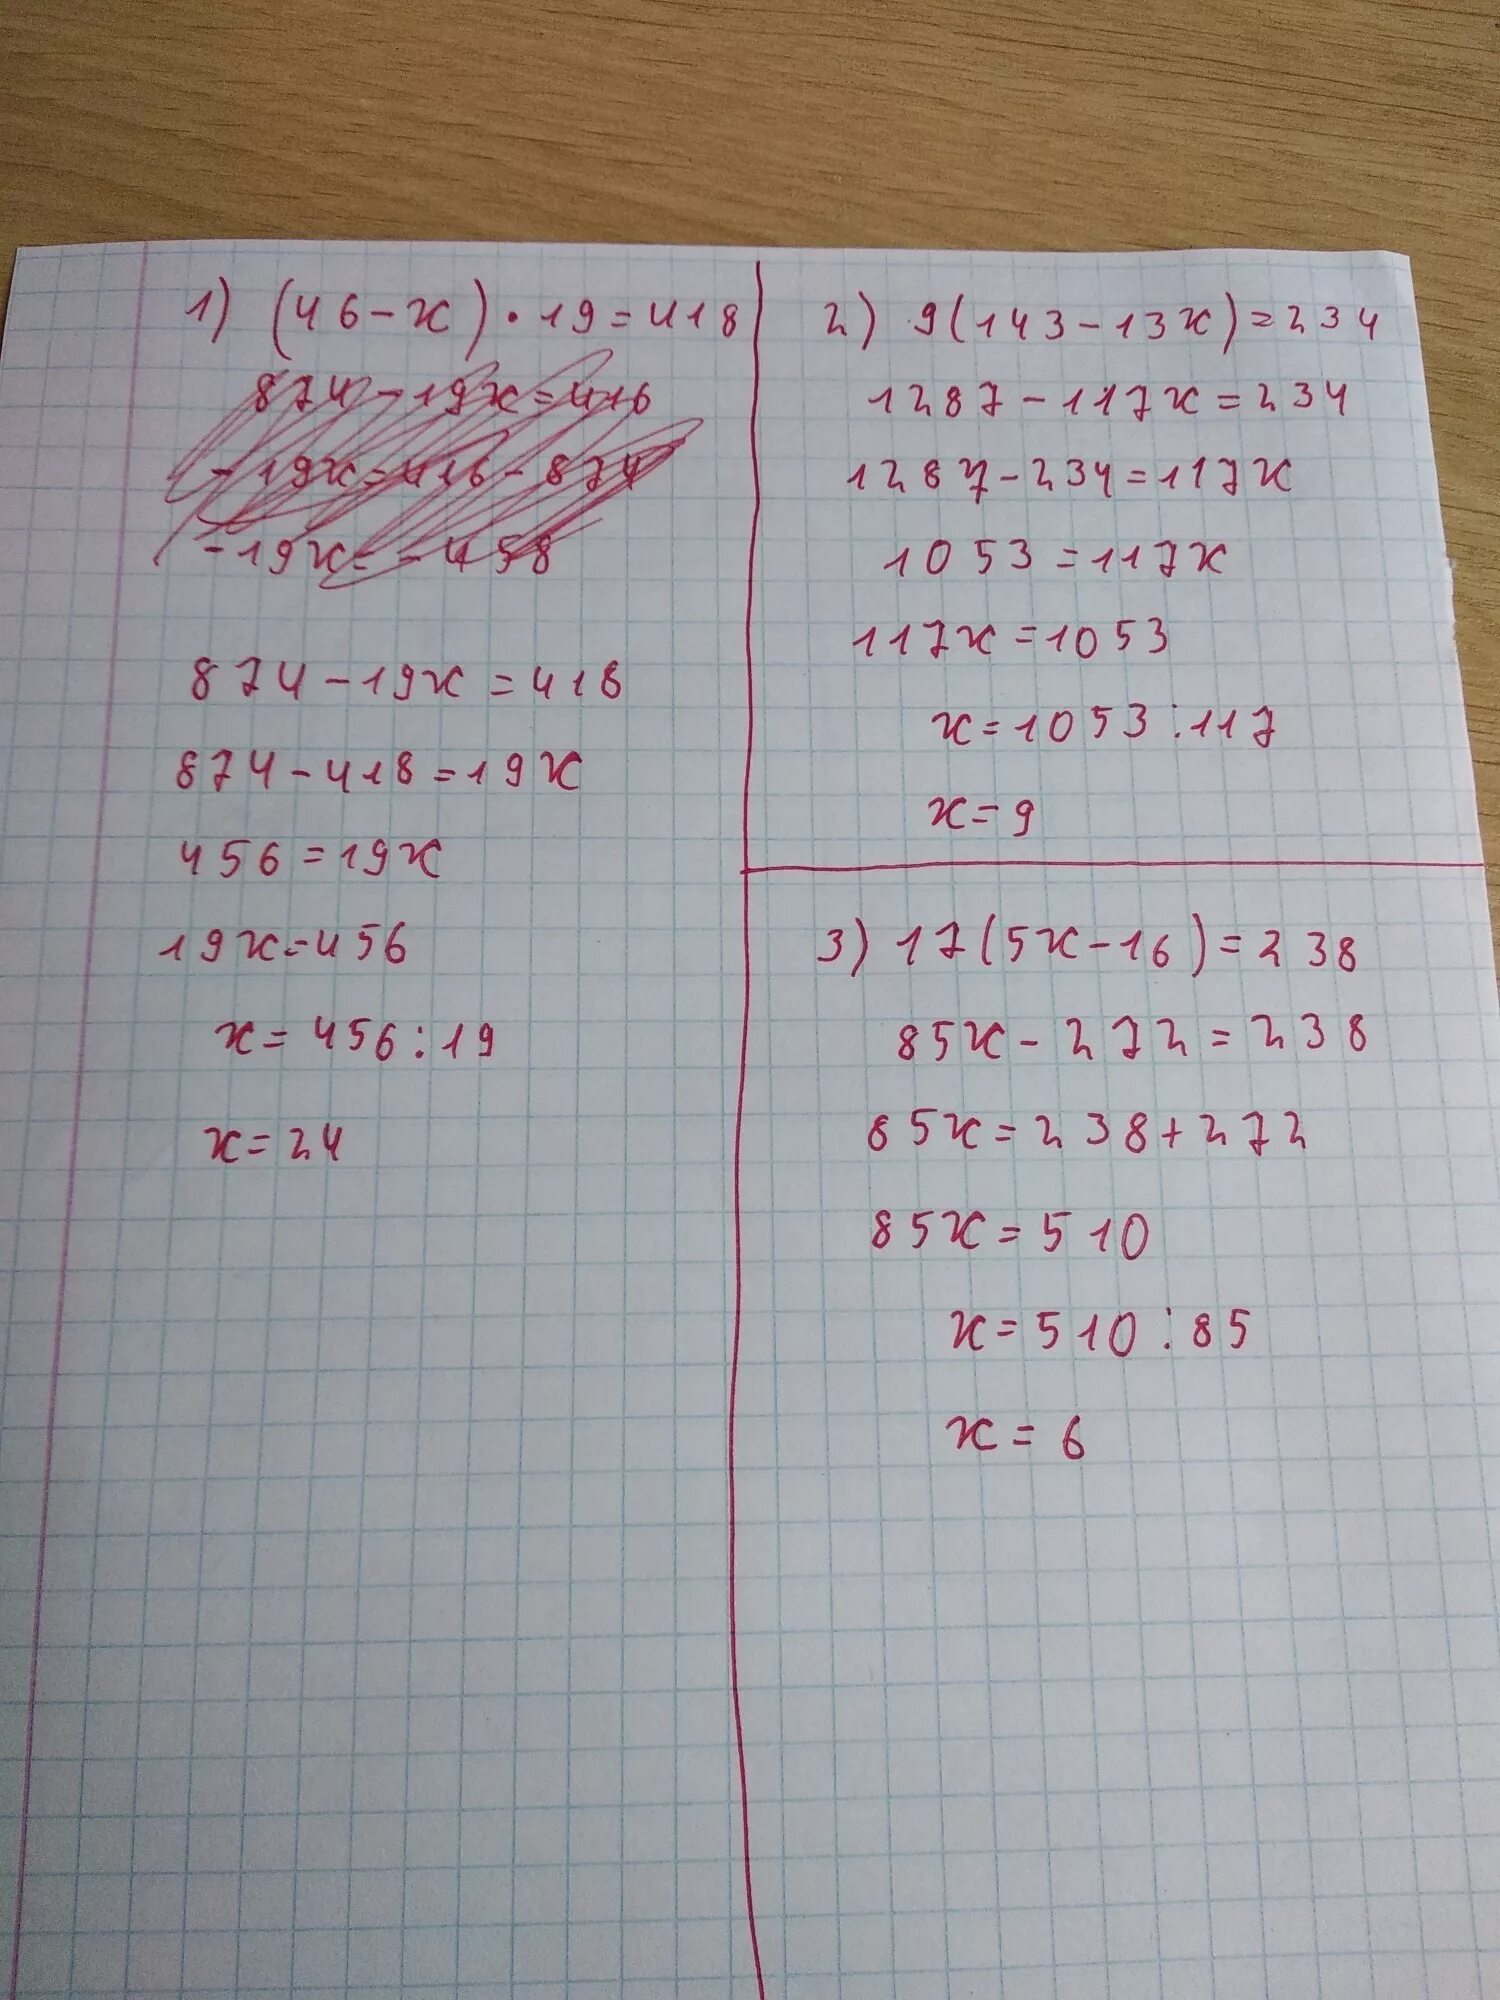 1) (46-x)·19=418
874-19x=416
-19x=416-874
-19x=-458
874-19x=418
874-418=19x
456=19x
19x=456
x=456:19
x=24
2) 9(143-13x)=234
1287-117x=234
1287-234=117x
1053=117x
117x=1053
x=1053:117
x=9
3) 17(5x-16)=238
85x-272=238
85x=238+272
85x=510
x=510:85
x=6